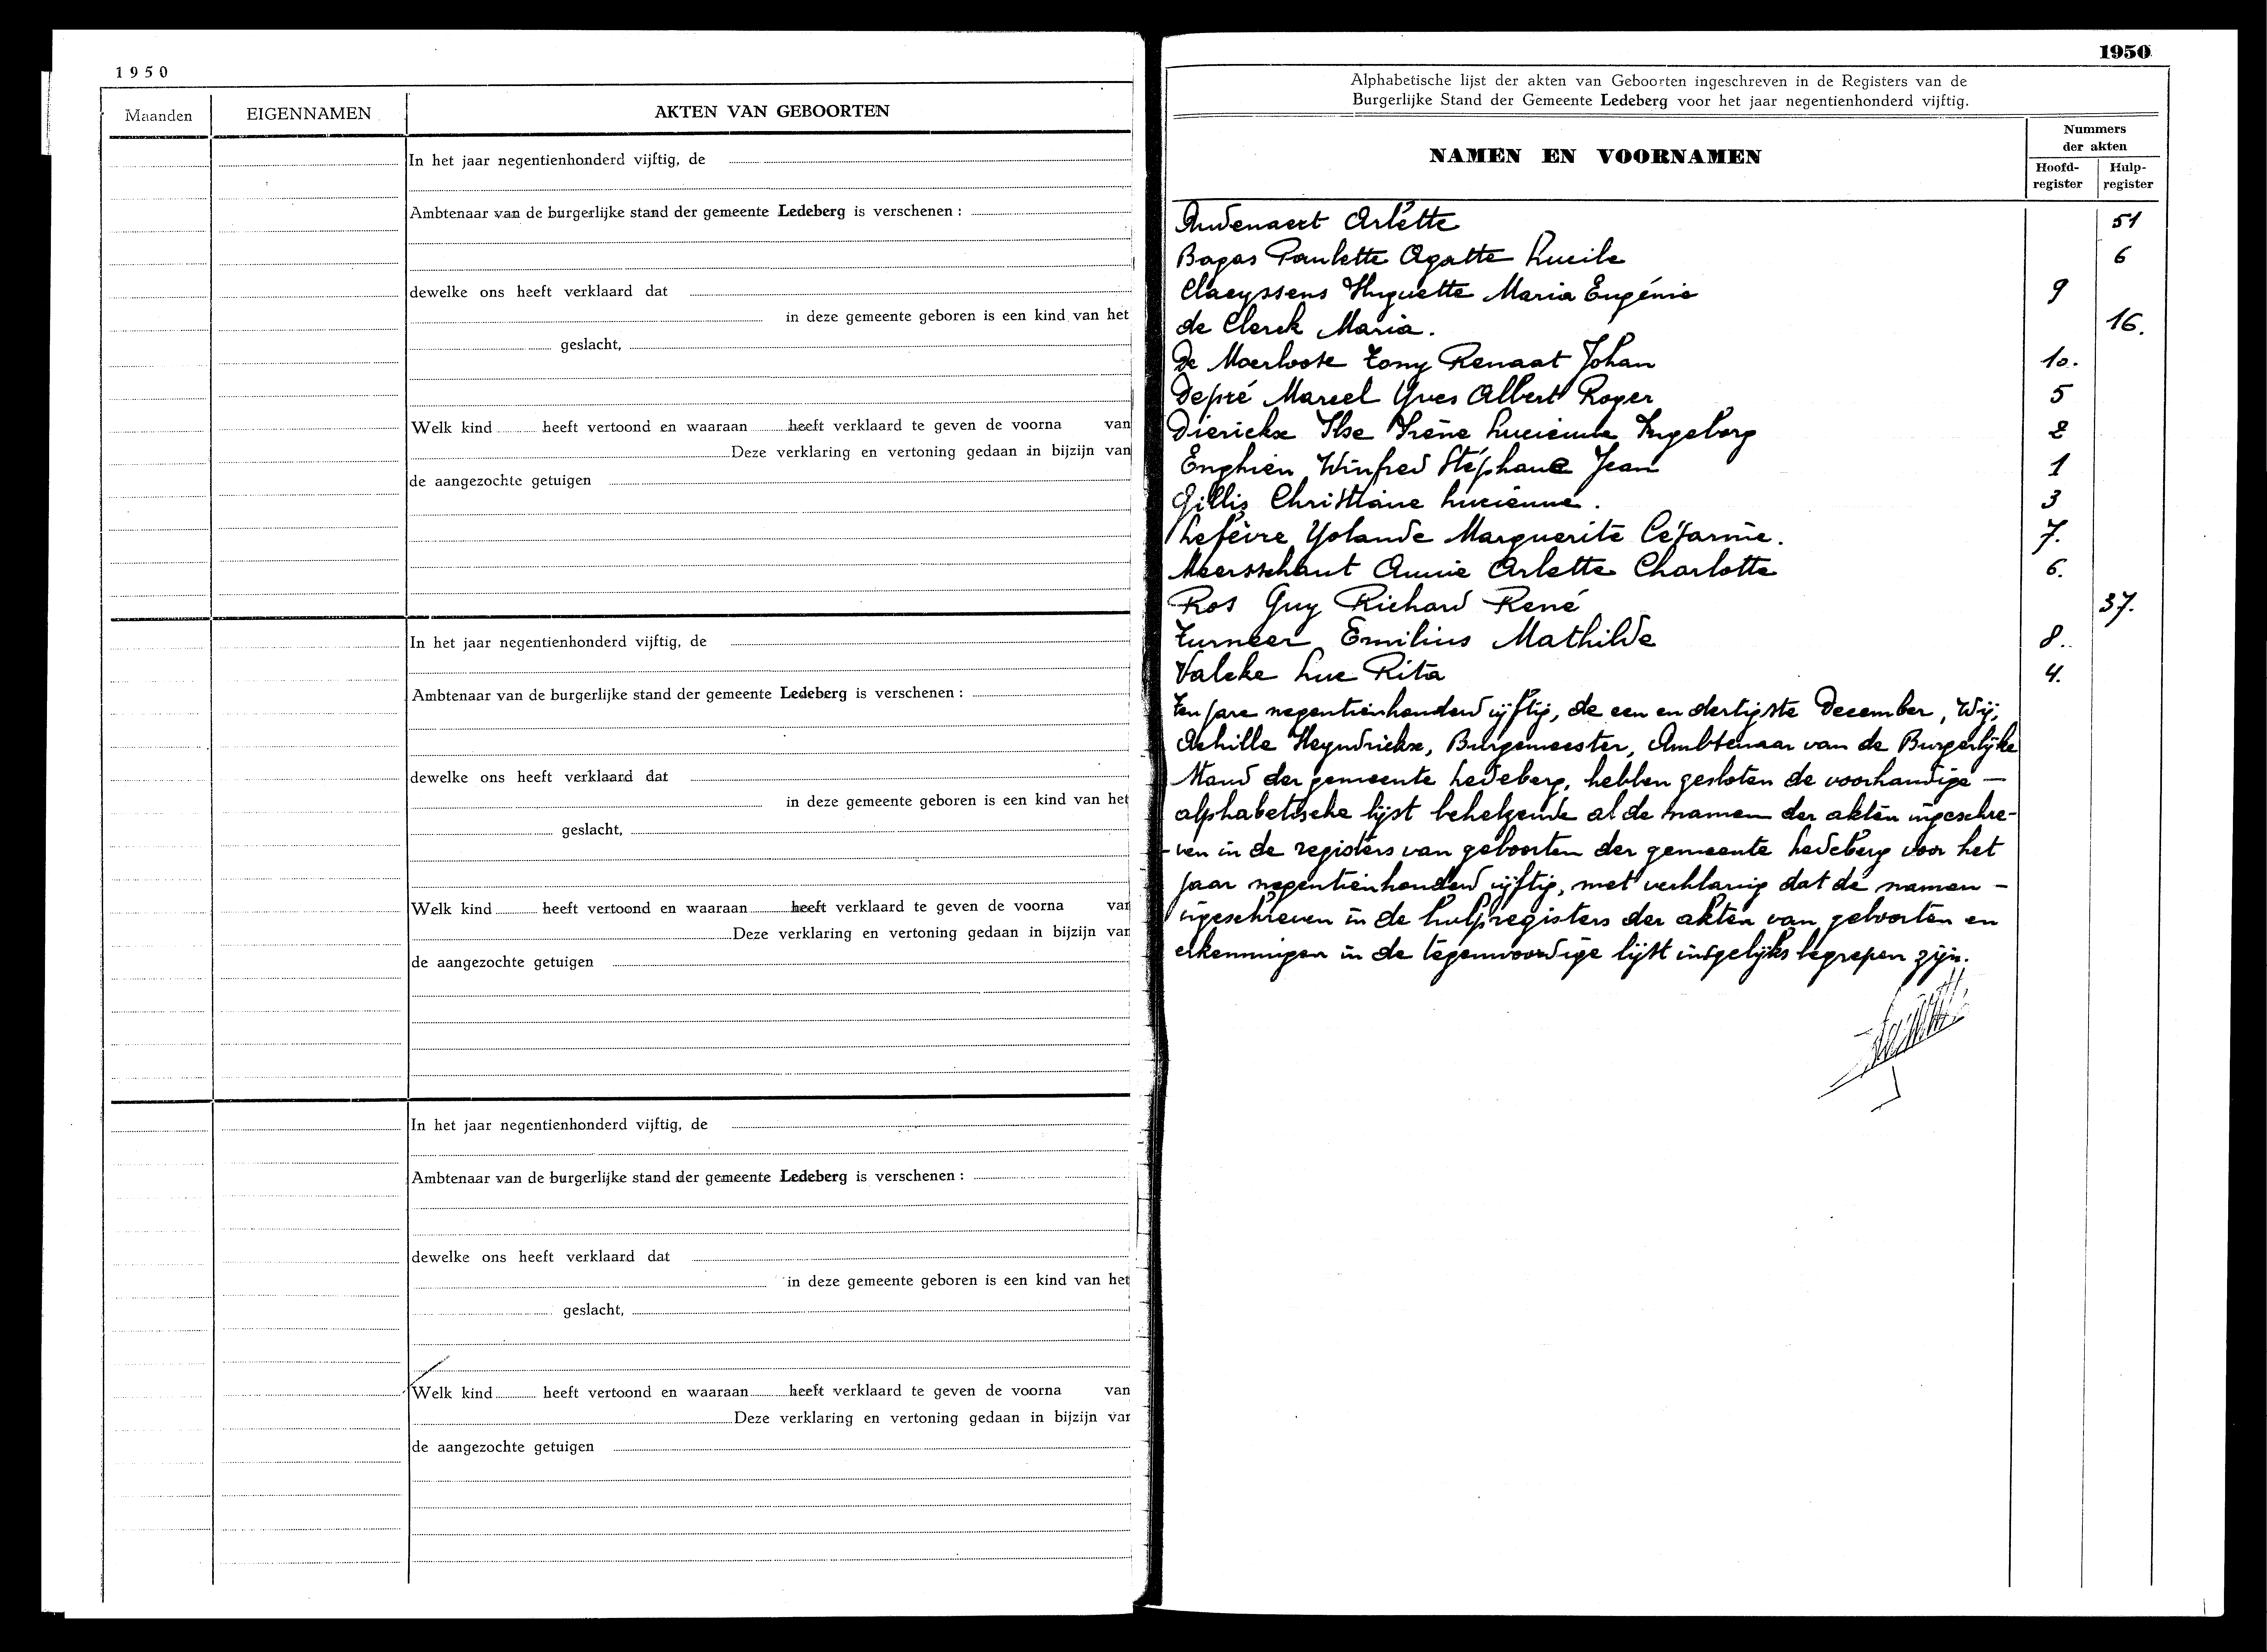 1950
Maanden
EIGENNAMEN
AKTEN VAN GEBOORTEN
In het jaar negentienhonderd vijftig, de
Ambtenaar van de burgerlijke stand der gemeente Ledeberg is verschenen :
dewelke ons heeft verklaard dat
in deze gemeente geboren is een kind van het
geslacht,
Welk kind heeft vertoond en waaraan heeft verklaard te geven de voorna van
Deze verklaring en vertoning gedaan in bijzijn van
de aangezochte getuigen
In het jaar negentienhonderd vijftig, de
Ambtenaar van de burgerlijke stand der gemeente Ledeberg is verschenen :
dewelke ons heeft verklaard dat
in deze gemeente geboren is een kind van het
geslacht,
Welk kind heeft vertoond en waaraan heeft verklaard te geven de voorna van
Deze verklaring en vertoning gedaan in bijzijn van
de aangezochte getuigen
In het jaar negentienhonderd vijftig, de
Ambtenaar van de burgerlijke stand der gemeente Ledeberg is verschenen :
dewelke ons heeft verklaard dat
in deze gemeente geboren is een kind van het
geslacht,
Welk kind heeft vertoond en waaraan heeft verklaard te geven de voorna van
Deze verklaring en vertoning gedaan in bijzijn van
de aangezochte getuigen
1950
Alphabetische lijst der akten van Geboorten ingeschreven in de Registers van de
Burgerlijke Stand der Gemeente Ledeberg voor het jaar negentienhonderd vijftig.
NAMEN EN VOORNAMEN
Nummers
der akten
Hoofd-
register
Hulp-
register
Audenaert Arlette 51
Bagas Paulette Agatte Lucile 6
Claeyssens Huguette Maria Eugénie 9
de Clerck Maria. 16.
De Moerloose Tony Renaat Johan 10.
Depré Marcel Yves Albert Roger 5
Dierickx Ilse Irène Lucienne Ingeborg 2
Enghien Winfred Stéphane Jean 1
Gillis Christiane Lucienne. 3
Lefèvre Yolande Marguerite Césarine. 7.
Meersschaut Annie Arlette Charlotte 6.
Ros Guy Richard René 37.
Turneer Emilius Mathilde 8.
Valcke Luc Rita 4.
Ten jare negentienhonderd vijftig, de een en dertigste December, Wij,
Achille Heyndrickx, Burgemeester, Ambtenaar van de Burgerlijke
Stand der gemeente Ledeberg, hebben gesloten de voorhandige —
alphabetische lijst behelzende al de namen der akten ingeschre-
-ven in de registers van geboorten der gemeente Ledeberg voor het
jaar negentienhonderd vijftig, met verklaring dat de namen -
ingeschreven in de hulpregisters der akten van geboorten en
erkenningen in de tegenwoordige lijst insgelijks begrepen zijn.